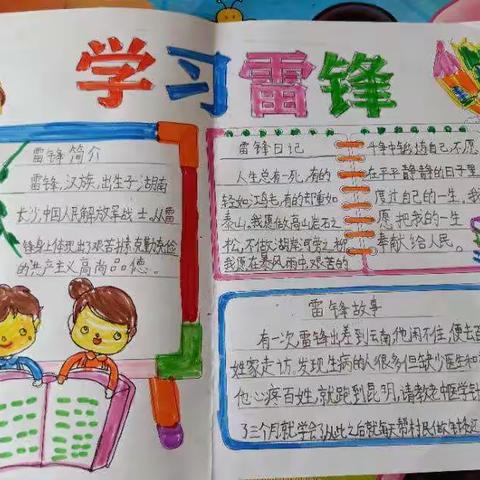 学习雷锋
雷锋简介
雷锋,汉族,出生于湖南
长沙,中国人民解放军战士,从雷
锋身上体现出了艰苦朴素克勤克俭
的共产主义高尚品德。
雷锋日记
人生总有一死,有的
轻如鸿毛,有的却重如
泰山。我愿做高山岩石之
松,不做湖岸河旁之柳
我愿在暴风雨中艰苦的
斗争中锻炼自己,不愿
在平平静静的日子里
度过自己的一生。我
愿把我的一生
奉献给人民。
雷锋故事
有一次雷锋出差到云南,他闲不住,便去百
姓家走访,发现生病的人很多,但缺少医生和
他心疼百姓,就跑到昆明,请教老中医学针
了三个月就学会了,从此之后就每天帮村民们